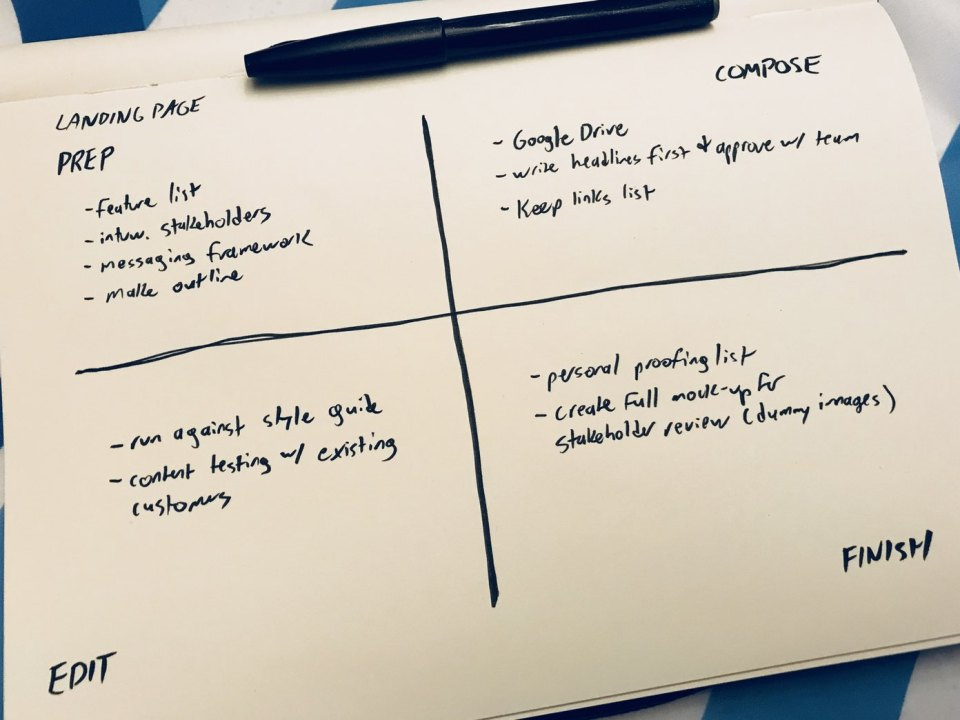 LANDING PAGE
PREP
- feature list
- intvw. stakeholders
- messaging framework
- make outline
COMPOSE
- Google Drive
- write headlines first & approve w/ team
- Keep links list
- run against style guide
- content testing w/ existing
customers
EDIT
- personal proofing list
- create full mock-up for
stakeholder review (dummy images)
FINISH